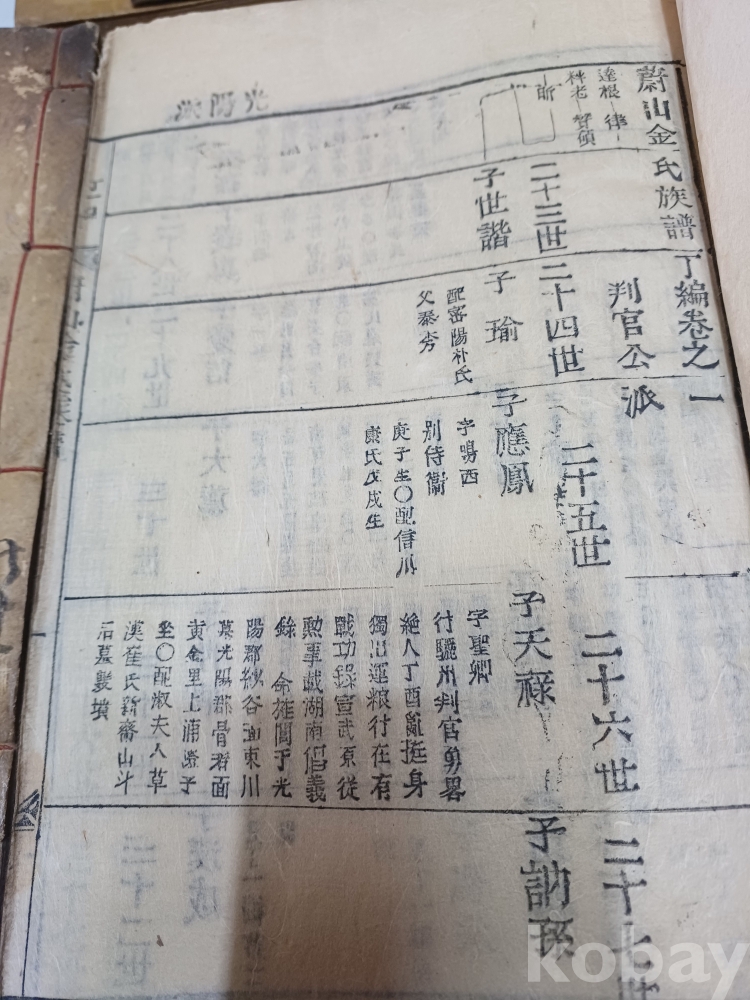 蔚山金氏族譜 丁編卷之一
判官公派
達根 律
秤老 贊禎
昕
二十三世
子世諧
二十四世
子瑜
配密陽朴氏
父泰秀
二十五世
子應鳳
字鳴西
別侍衛
庚子生〇配信川
康氏戊戌生
二十六世
子天祿
字聖卿
行驪州判官勇畧
絶人丁酉亂挺身
獨出運粮行在有
戰功錄宣武原從
勲事載湖南倡義
錄 命旌閭于光
陽郡 谷面東川
墓光陽郡骨若面
黃金里上浦 子
坐〇配淑夫人草
溪崔氏 齋山斗
后墓雙墳
二十七世
子訥孫
kobay